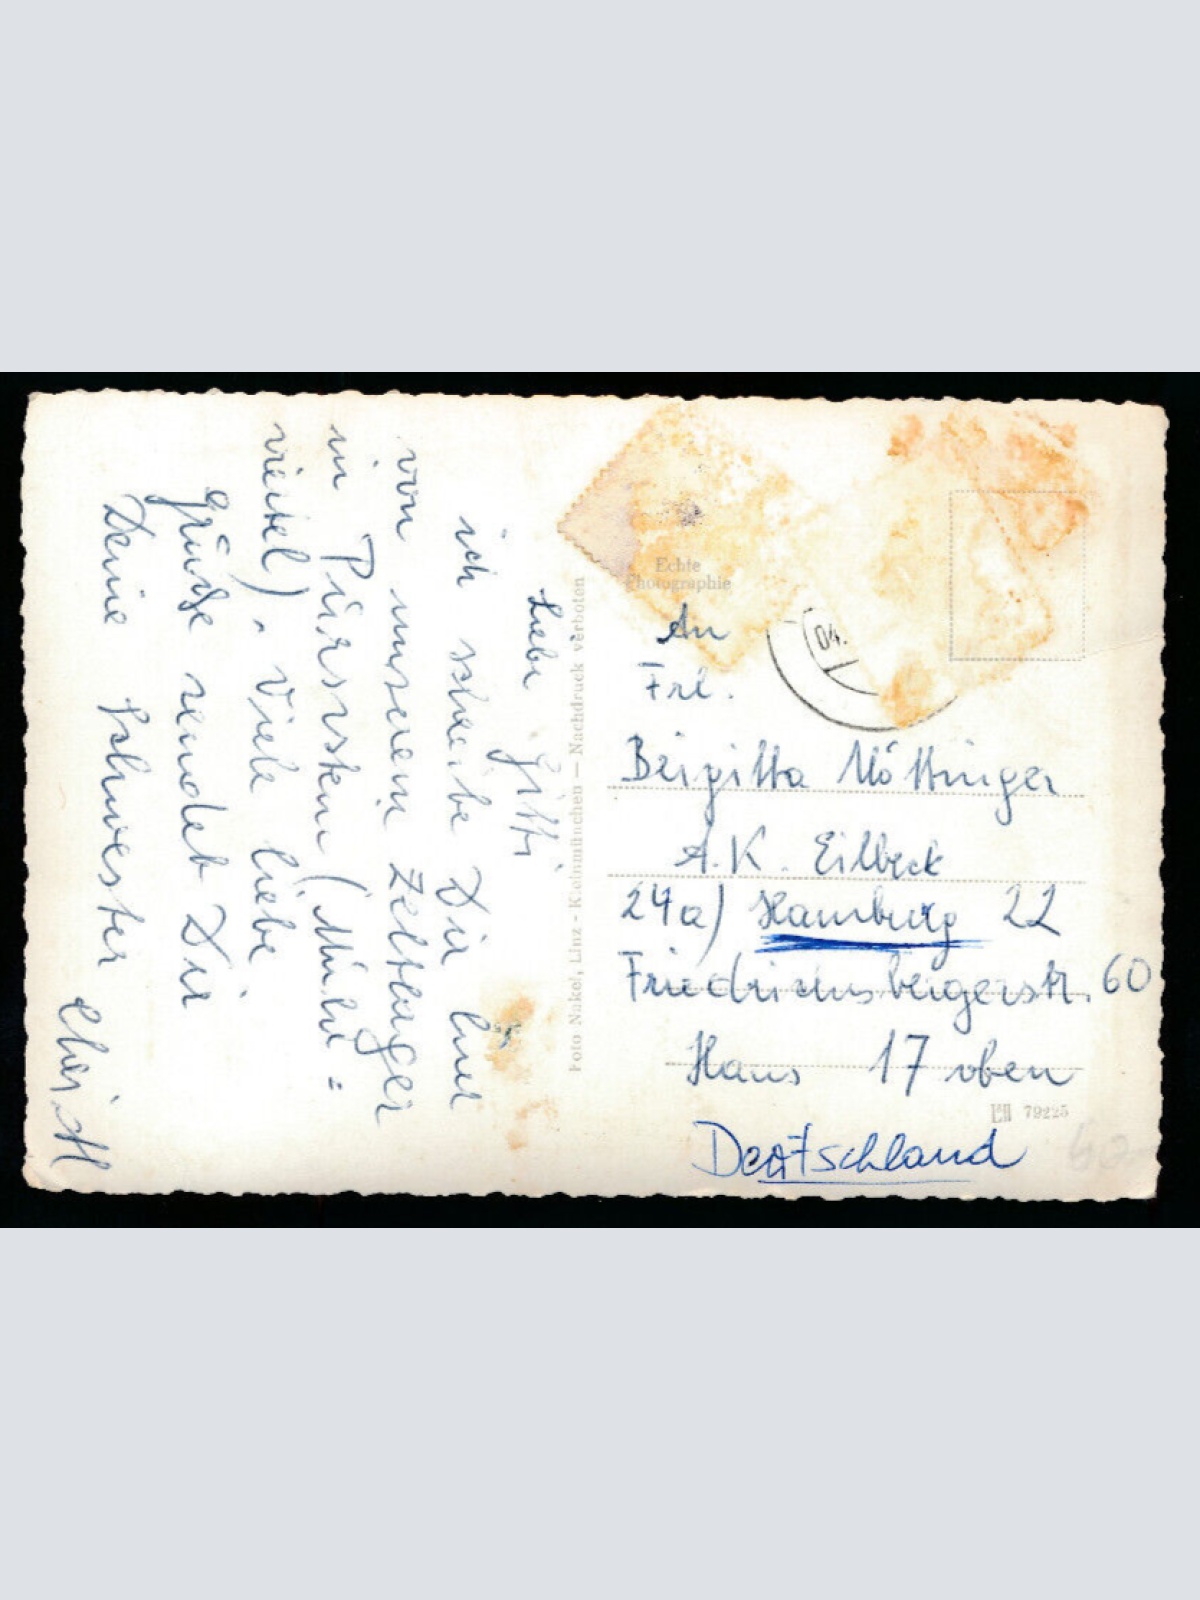 Liebe Gitti
ich schreibe Dir hier
von unserem Zeltlager
in Pürnstein (Mühl=
viertel). Viele liebe
Grüße sendet Dir
Deine Schwester
Foto Nakel, Linz - Kleinmünchen — Nachdruck verboten
Echte
Photographie
04.
An
Frl.
Birgitta Nöttinger
A.K. Eilbeck
24a) Hamburg 22
Friedrichsbergerstr. 60
Haus 17 oben
Deutschland
79225